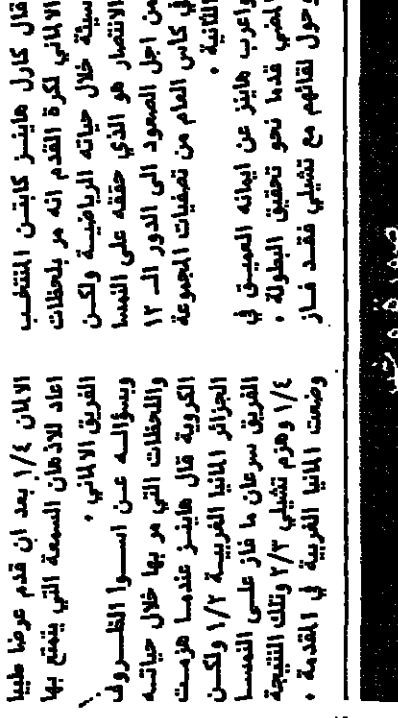 قال كارل هاينز كابتن المنتخب
الالماني لكرة القدم انه مر بلحظات
سيئة خلال حياته الرياضية ولكن
الانتصار هو الذي حققه على النمسا
من اجل الصعود الى الدور الـ ١٢
في كاس العام من تصفيات المجموعة
الثانية .
واعرب هاينز عن ايمانه العميق في
المضي قدما نحو تحقيق البطولة .
وحول لقائهم مع تشيلي فقد فاز
الالمان ١/٤ بعد ان قدم عرضا طيبا
اعاد للاذهان السمعة التي يتمتع بها
الفريق الالماني .
وبسؤاله عن اسوا الظروف
واللحظات التي مر بها خلال حياته
الكروية قال هاينز عندما هزمت
الجزائر المانيا الغربية ١/٢ ولكن
الفريق سرعان ما فاز على النمسا
١/٤ وهزم تشيلي ٢/٣ وتلك النتيجة
وضعت المانيا الغربية في المقدمة .